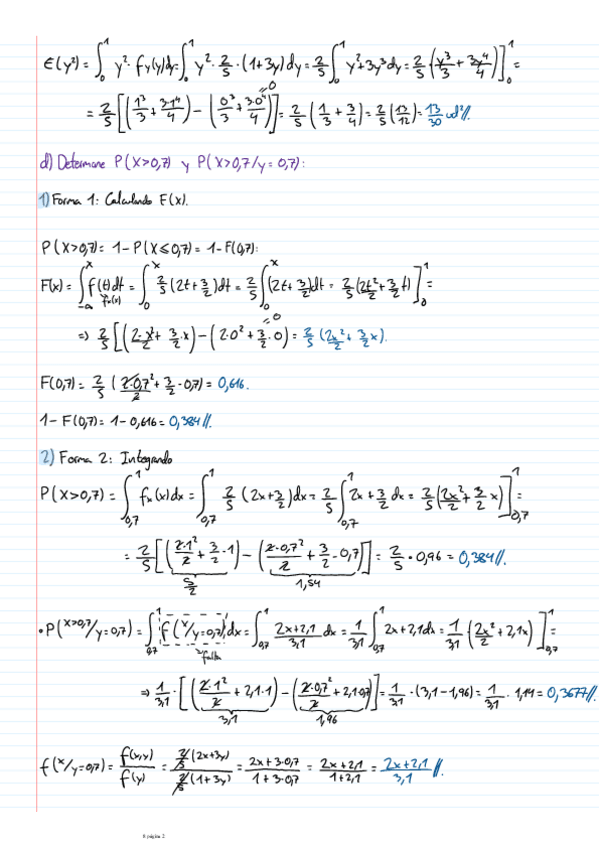 E(y²) = ∫₀¹ y² · fy(y)dy = ∫₀¹ y² · 2/5 · (1+3y)dy = 2/5 ∫₀¹ y²+3y³dy = 2/5 (y³/3 + 3y⁴/4)]₀¹ =
= 2/5 [(1³/3 + 3·1⁴/4) − (0³/3 + 3·0⁴/4)] = 2/5 (1/3 + 3/4) = 2/5 (13/12) = 13/30 ud²//.
=0
d) Determine P(X>0,7) y P(X>0,7/y=0,7):
1) Forma 1: Calculando F(x).
P(X>0,7) = 1 − P(X≤0,7) = 1 − F(0,7):
F(x) = ∫₋∞ˣ f(t)dt = ∫₀ˣ 2/5 (2t+3/2)dt = 2/5 ∫₀ˣ (2t+3/2)dt = 2/5 (2t²/2 + 3/2 t)]₀¹ =
fx(x)
=> 2/5 [(2·x²/2 + 3/2·x) − (2·0² + 3/2·0)] = 2/5 (2x²/2 + 3/2 x).
=0
F(0,7) = 2/5 (2·0,7²/2 + 3/2·0,7) = 0,616.
1 − F(0,7) = 1 − 0,616 = 0,384//.
2) Forma 2: Integrando
P(X>0,7) = ∫₀,₇¹ fx(x)dx = ∫₀,₇¹ 2/5 (2x+3/2)dx = 2/5 ∫₀,₇¹ 2x+3/2 dx = 2/5 (2x²/2 + 3/2 x)]₀,₇¹ =
= 2/5 [(2·1²/2 + 3/2·1) − (2·0,7²/2 + 3/2·0,7)] = 2/5 · 0,96 = 0,384//.
5/2 1,54
• P(X>0,7/y=0,7) = ∫₀,₇¹ f(x/y=0,7)dx = ∫₀,₇¹ 2x+2,1/3,1 dx = 1/3,1 ∫₀,₇¹ 2x+2,1dx = 1/3,1 (2x²/2 + 2,1x)]₀,₇¹ =
falta
=> 1/3,1 · [(2·1²/2 + 2,1·1) − (2·0,7²/2 + 2,1·0,7)] = 1/3,1 · (3,1−1,96) = 1/3,1 · 1,14 = 0,3677//.
3,1 1,96
f(x/y=0,7) = f(x,y)/f(y) = 2/5 (2x+3y)/2/5 (1+3y) = 2x+3·0,7/1+3·0,7 = 2x+2,1/1+2,1 = 2x+2,1/3,1 //.
8 página 2